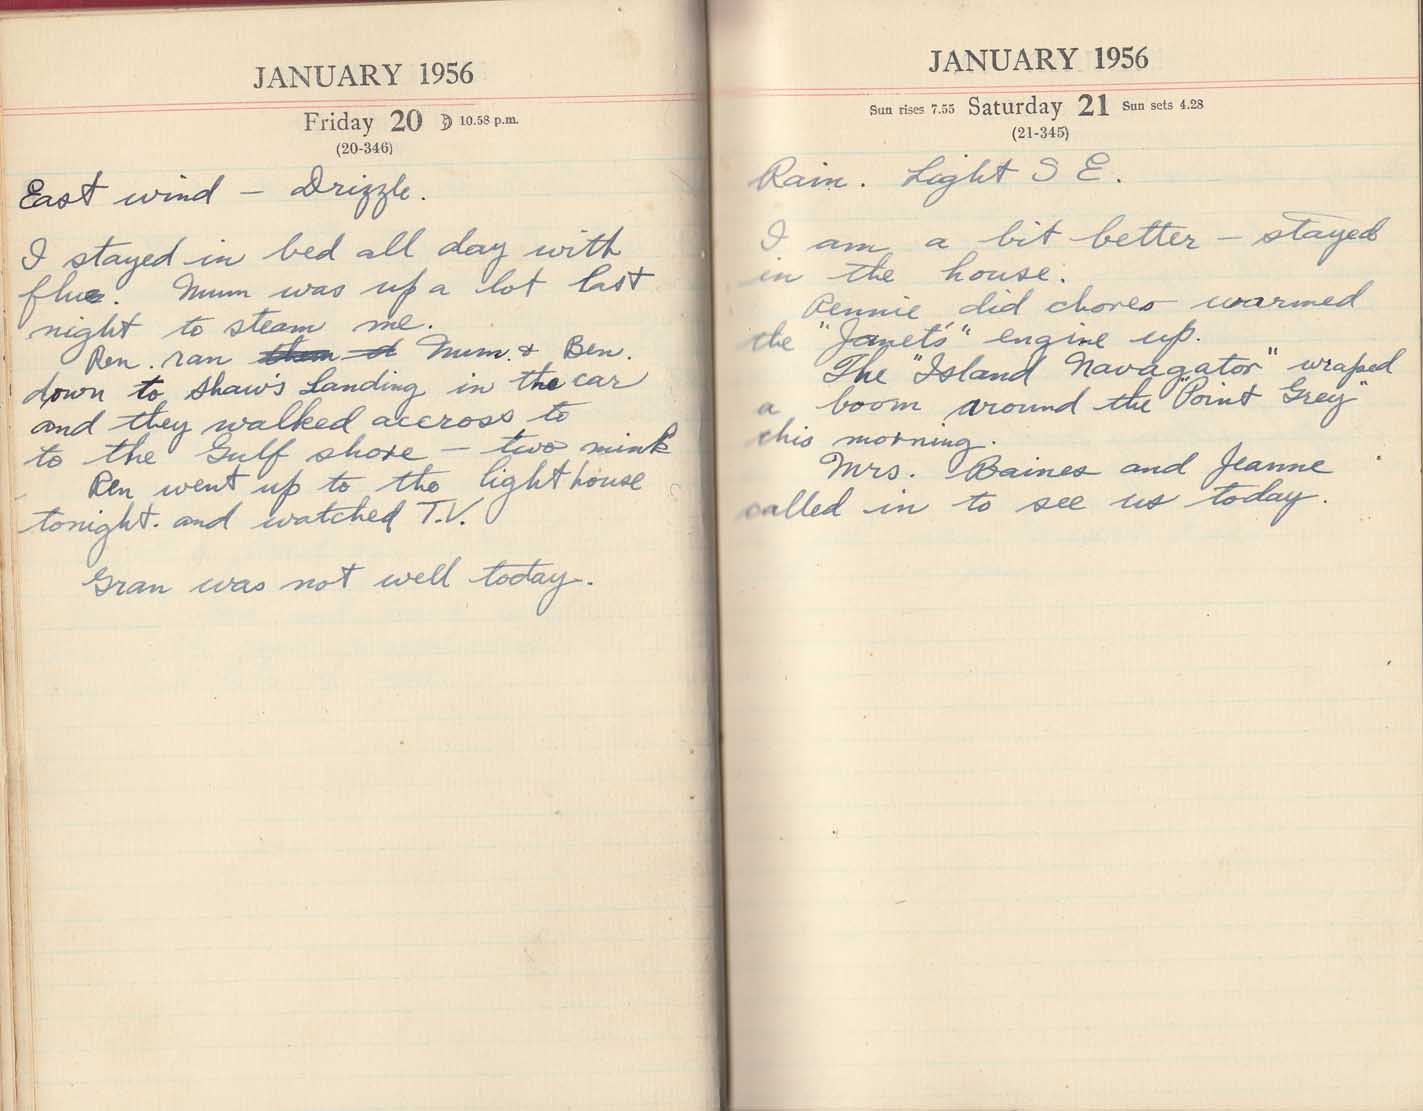 JANUARY 1956
Friday 20 10.58 p.m.
(20-346)
East wind – Drizzle.
I stayed in bed all day with
flue. Mum was up a lot last
night to steam me.
Ren. ran Mum. & Ben.
down to Shaw's Landing in the car
and they walked accross to
to the Gulf shore – two mink
Ren went up to the lighthouse
tonight. and watched T.V.
Gran was not well today.
JANUARY 1956
Sun rises 7.55 Saturday 21 Sun sets 4.28
(21-345)
Rain. Light S E.
I am a bit better – stayed
in the house.
Rennie did chores warmed
the "Janet's" engine up.
The "Island Navagator" wraped
a boom around the "Point Grey"
this morning.
Mrs. Baines and Jeanne
called in to see us today.